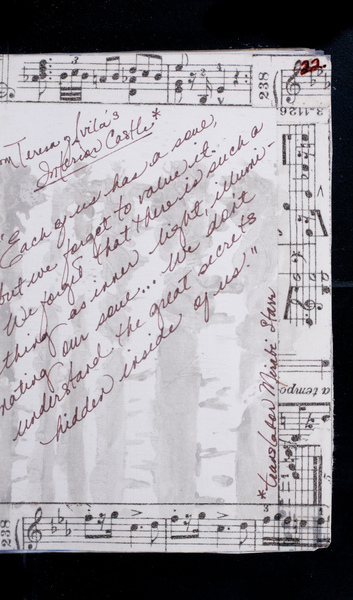 22.
238
3-1126
om Teresa of Avila's
Interior Castle*
"Each of us has a soul,
but we forget to value it.
We forget that there is such a
thing as inner light, illumi-
nating our soul... We don't
understand the great secrets
hidden inside of us."
a tempo
*translator Mirabai Starr
238